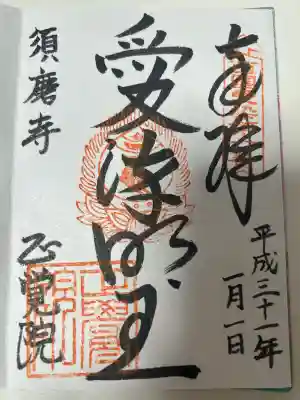 奉拝
平成三十一年
一月一日
愛染明王
須磨寺
正覚院